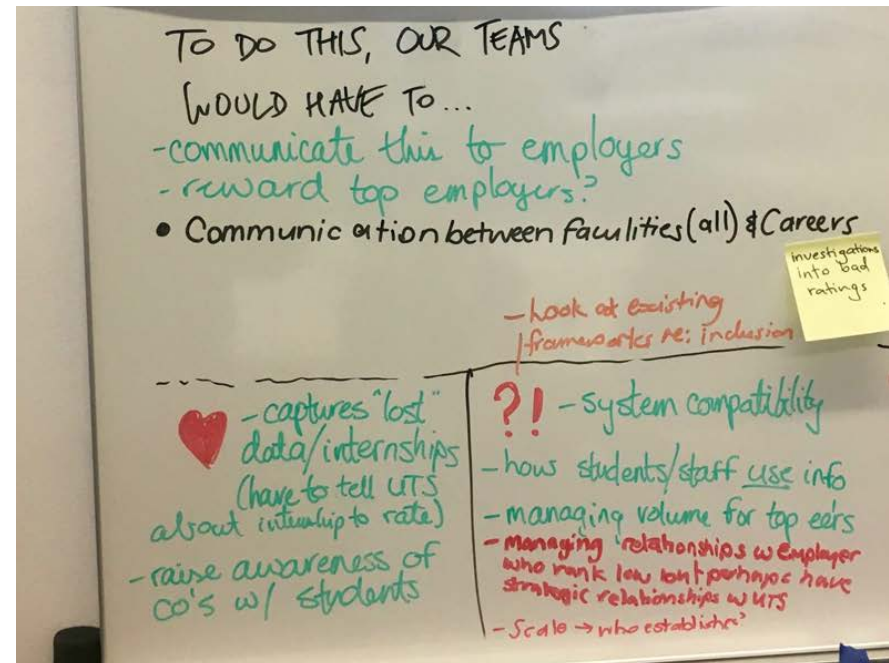 TO DO THIS, OUR TEAMS
WOULD HAVE TO...
-communicate this to employers
- reward top employers?
• Communication between faculities (all) & Careers
investigations
into bad
ratings
- Look at existing
frameworks re: inclusion
- captures "lost"
data/internships
(have to tell UTS
about internship to rate)
- raise awareness of
co's w/ students
?! - system compatibility
- how students/staff use info
- managing volume for top ee'rs
- managing relationships w employer
who rank low but perhaps have
strategic relationships w UTS
- Scale → who establishes?